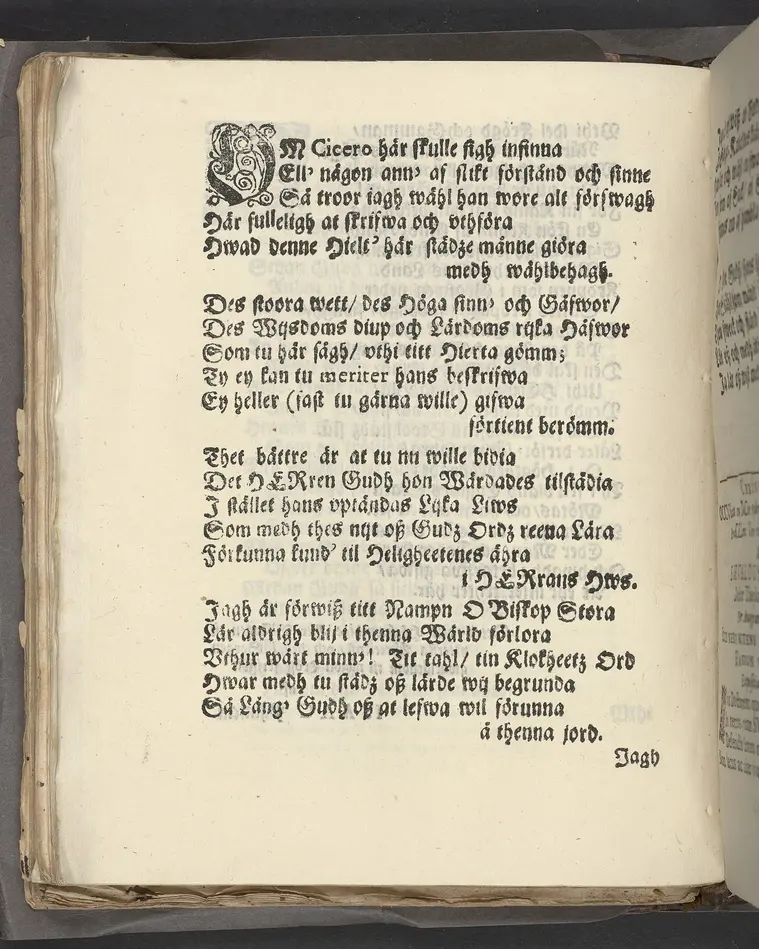 OM Cicero här skulle sigh infinna
Ell' någon ann' af slikt förstånd och sinne
Så troor iagh wähl han wore alt förswagh
Här fulleligh at skrifwa och vthföra
Hwad denne Hielt' här städze månne giöra
medh wählbehagh.
Des stoora wett/ des Höga sinn' och Gåfwor/
Des Wijsdoms diup och Lärdoms rijka Håfwor
Som tu här sågh/ vthi titt Hierta gömm;
Ty ey kan tu meriter hans beskrifwa
Ey heller (fast tu gärna wille) gifwa
förtient berömm.
Thet bättre är at tu nu wille bidia
Det HERren Gudh hon Wärdades tilstädia
I stället hans vptändas Lijka Liws
Som medh thes nijt oß Gudz Ordz reena Lära
Förkunna kund' til Heligheetenes ähra
i HERrans Hws.
Jagh är förwiß titt Nampn O Biskop Stora
Lär aldrigh blij i thenna Wärld förlora
Vthur wårt minn'! Tit tahl/ tin Klokheetz Ord
Hwar medh tu städz oß lärde wij begrunda
Så Läng' Gudh oß at lefwa wil förunna
å thenna jord.
Jagh